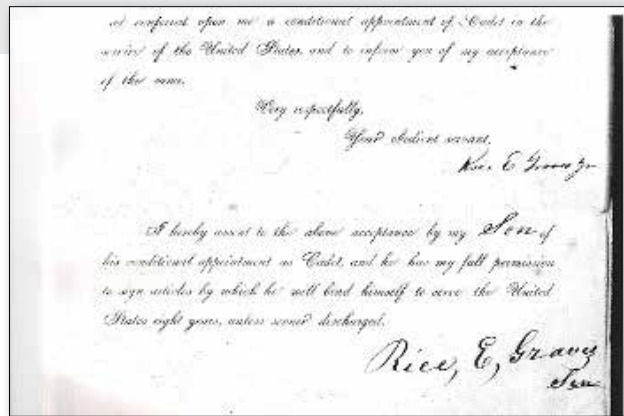 ed conferred upon me a conditional appointment of Cadet in the
service of the United States, and to inform you of my acceptance
of the same.
Very respectfully,
Your obedient servant,
Rice E Graves Jr
I hereby assent to the above acceptance by my Son of
his conditional appointment as Cadet, and he has my full permission
to sign articles by which he will bind himself to serve the United
States eight years, unless sooner discharged.
Rice, E, Graves
Sen